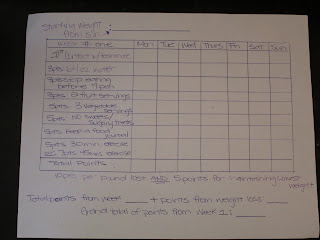 Starting Weight:
from S.I.:
Week # one Mon Tue Wed Thurs Fri Sat Sun
3pts 64 oz water
3pts stop eating
before 7/8pm
3pts 2 fruit servings
3pts 3 vegetable
servings
5pts NO sweets/
sugary treats
5pts keep a food
journal
5pts 30 min exercise
or 7pts 45 min exercise
Total Points:
10pts per pound lost AND 5 points for maintaining weight
Total points from Week + points from weight loss
Grand total of points from Week 1: